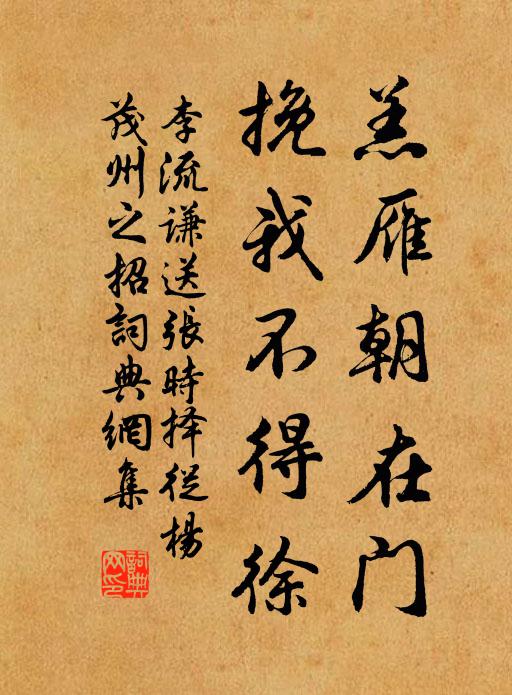 羔雁朝在门
挽我不得徐
李流谦送張時择從楊
茂州之招詞典網集
詞典网印